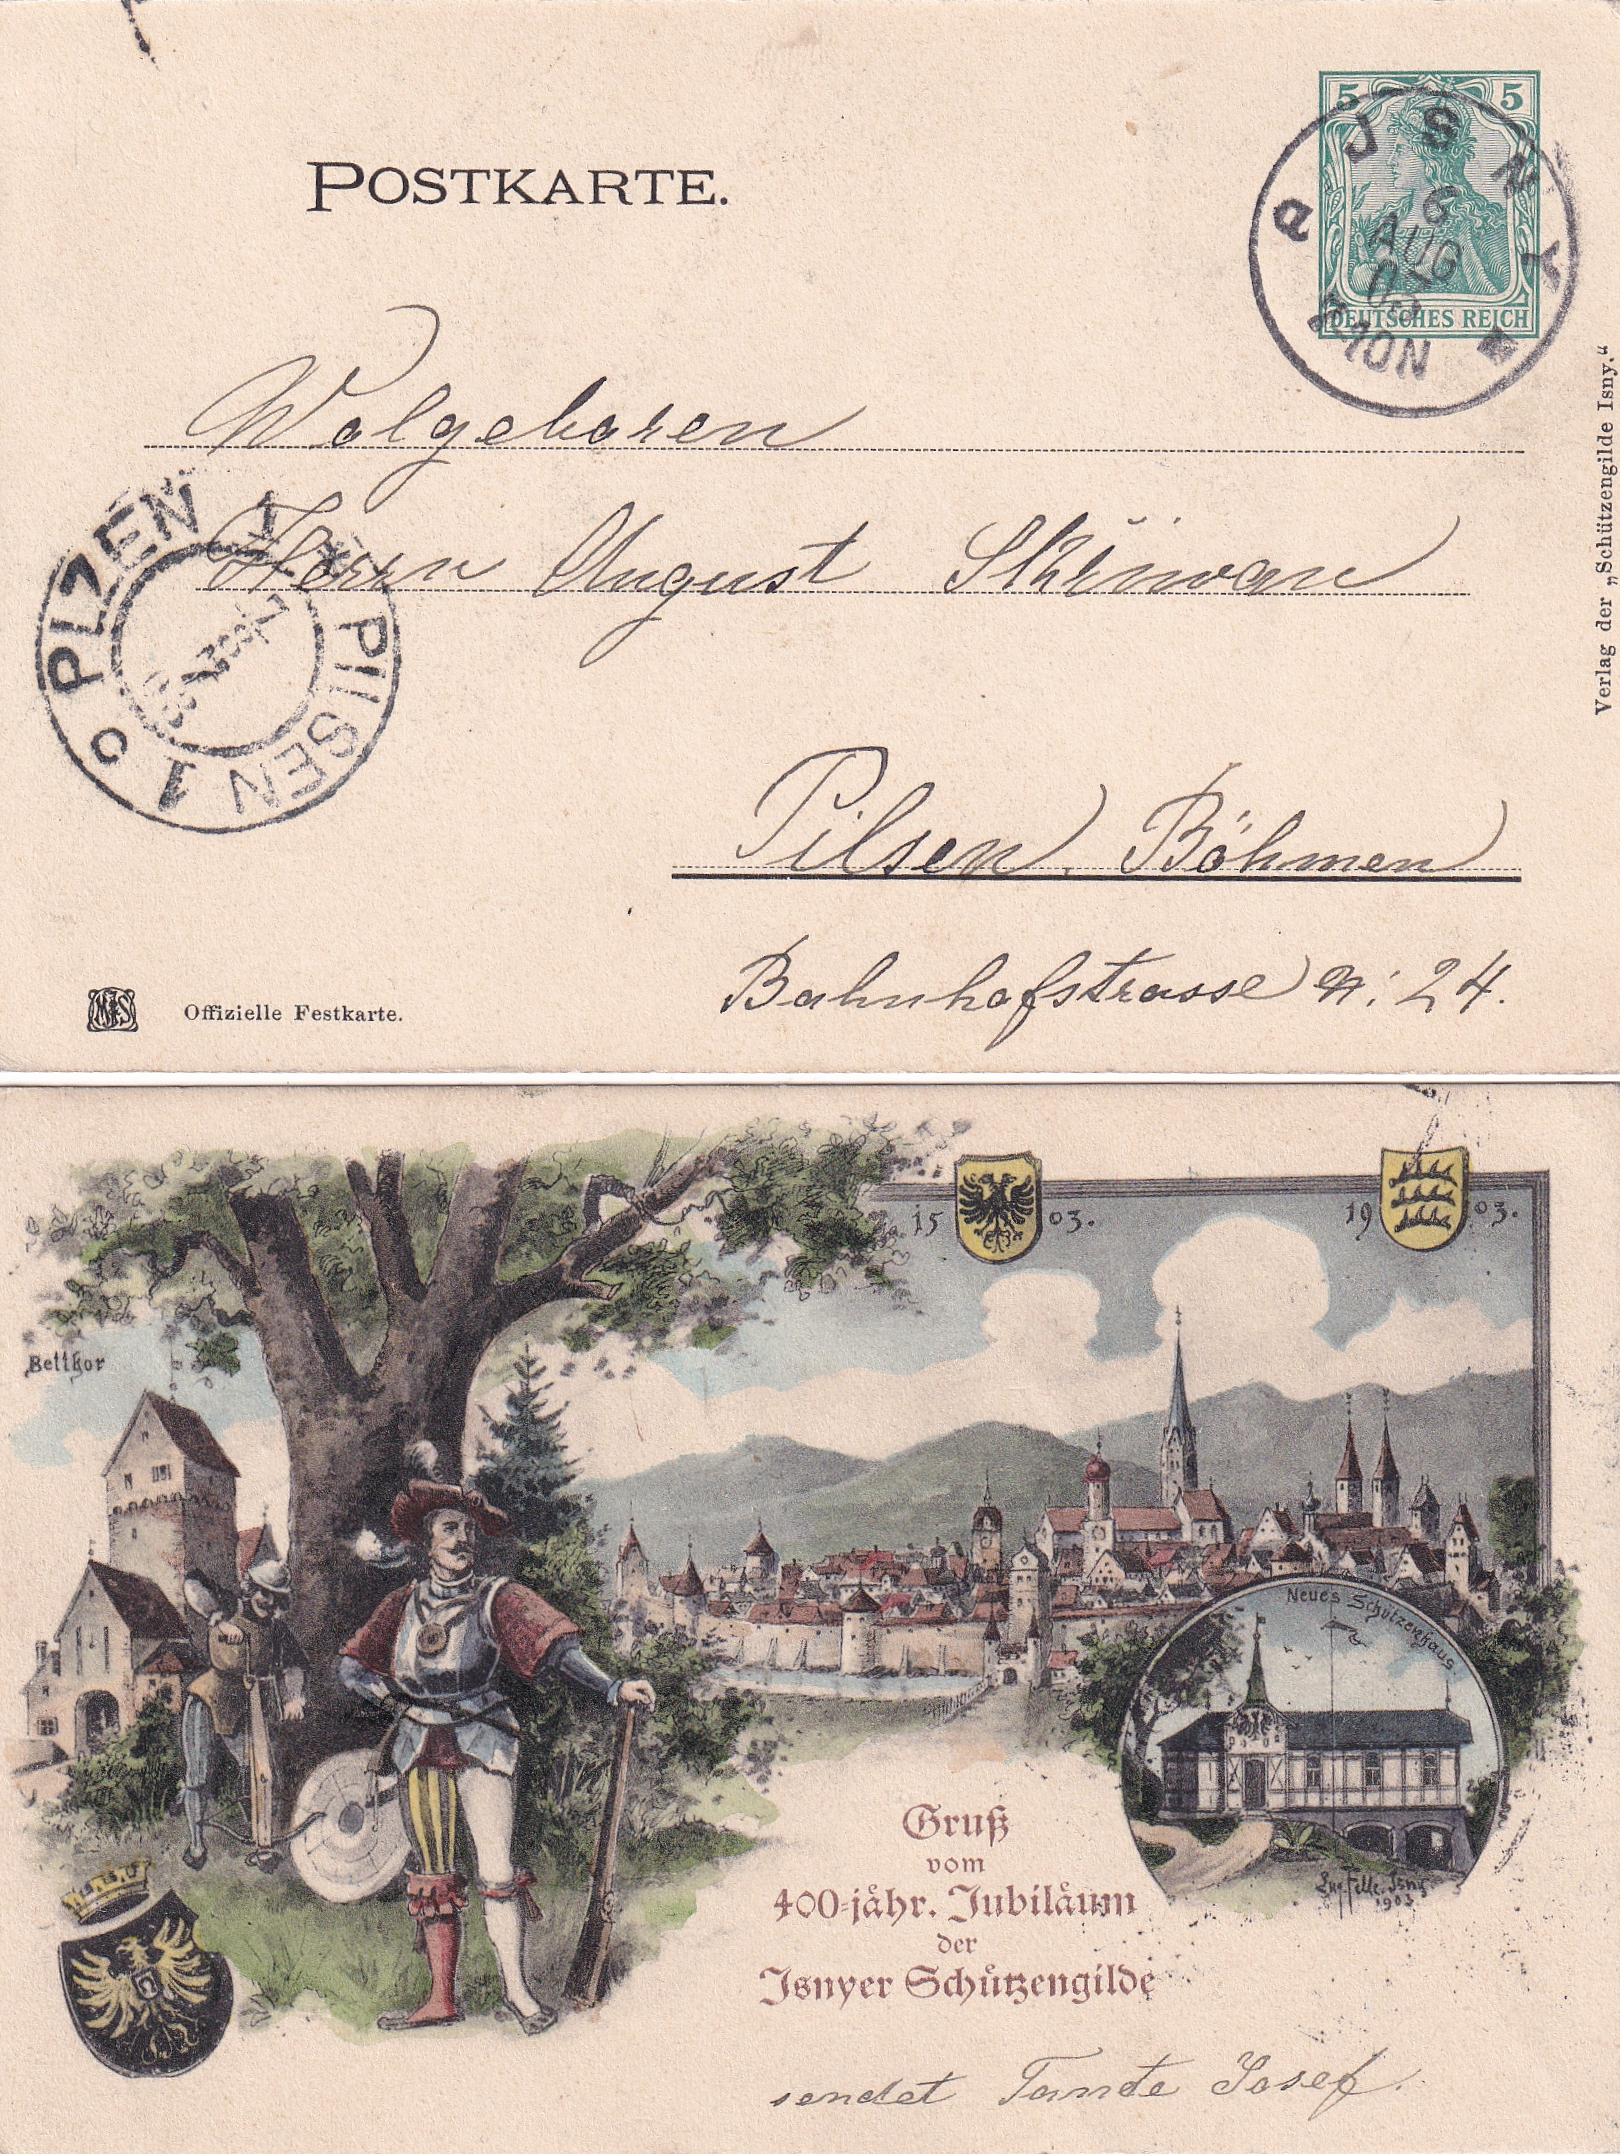 POSTKARTE.
5 5
DEUTSCHES REICH
JSNY
6
AUG
03
Wolgeboren
Herrn August Skřiwan
PLZEŇ 1
PILSEN 1
Pilsen, Böhmen
Bahnhofstrasse N: 24.
Offizielle Festkarte.
Verlag der „Schützengilde Isny.“
15 03.
19 03.
Bettkor
Neues Schützenhaus.
Isny
1903
Gruß
vom
400=jähr. Jubiläum
der
Isnyer Schützengilde
sendet Tante Josef.